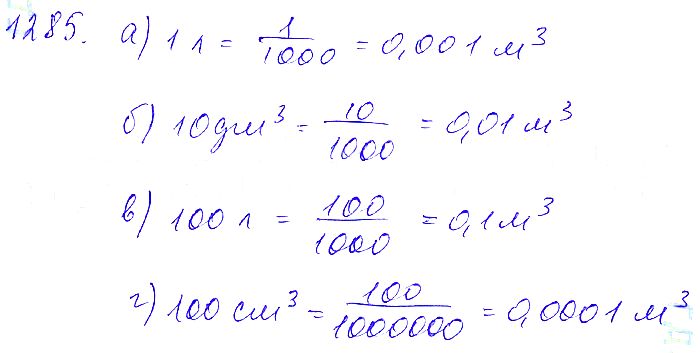 1285. а) 1 л = 1/1000 = 0,001 м³
б) 10 дм³ = 10/1000 = 0,01 м³
в) 100 л = 100/1000 = 0,1 м³
г) 100 см³ = 100/1000000 = 0,0001 м³